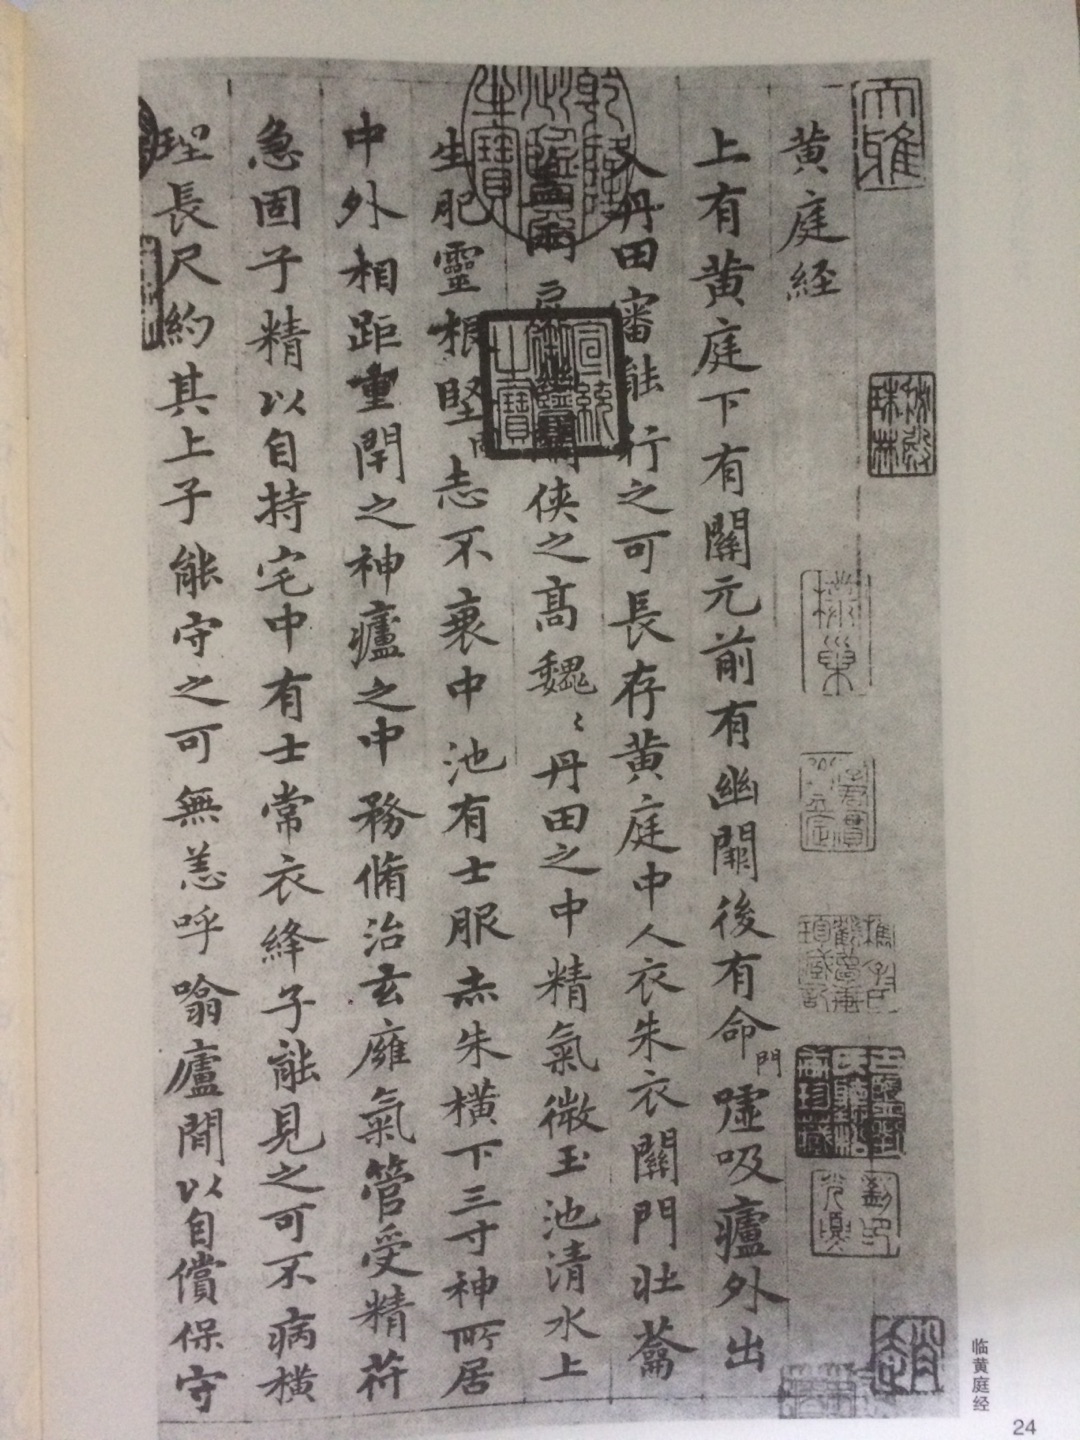 黄庭経
上有黄庭下有關元前有幽闕後有命門嘘吸廬外出
入丹田審能行之可長存黄庭中人衣朱衣關門壮蘥
蓋兩扉幽闕侠之髙魏〻丹田之中精氣微玉池清水上
生肥靈根堅固志不衰中池有士服赤朱横下三寸神所居
中外相距重閇之神廬之中務脩治玄廱氣管受精苻
急固子精以自持宅中有士常衣絳子能見之可不病横
理長尺約其上子能守之可無恙呼噏廬間以自償保守
大雅
宣統
之寶
临黄庭经
24